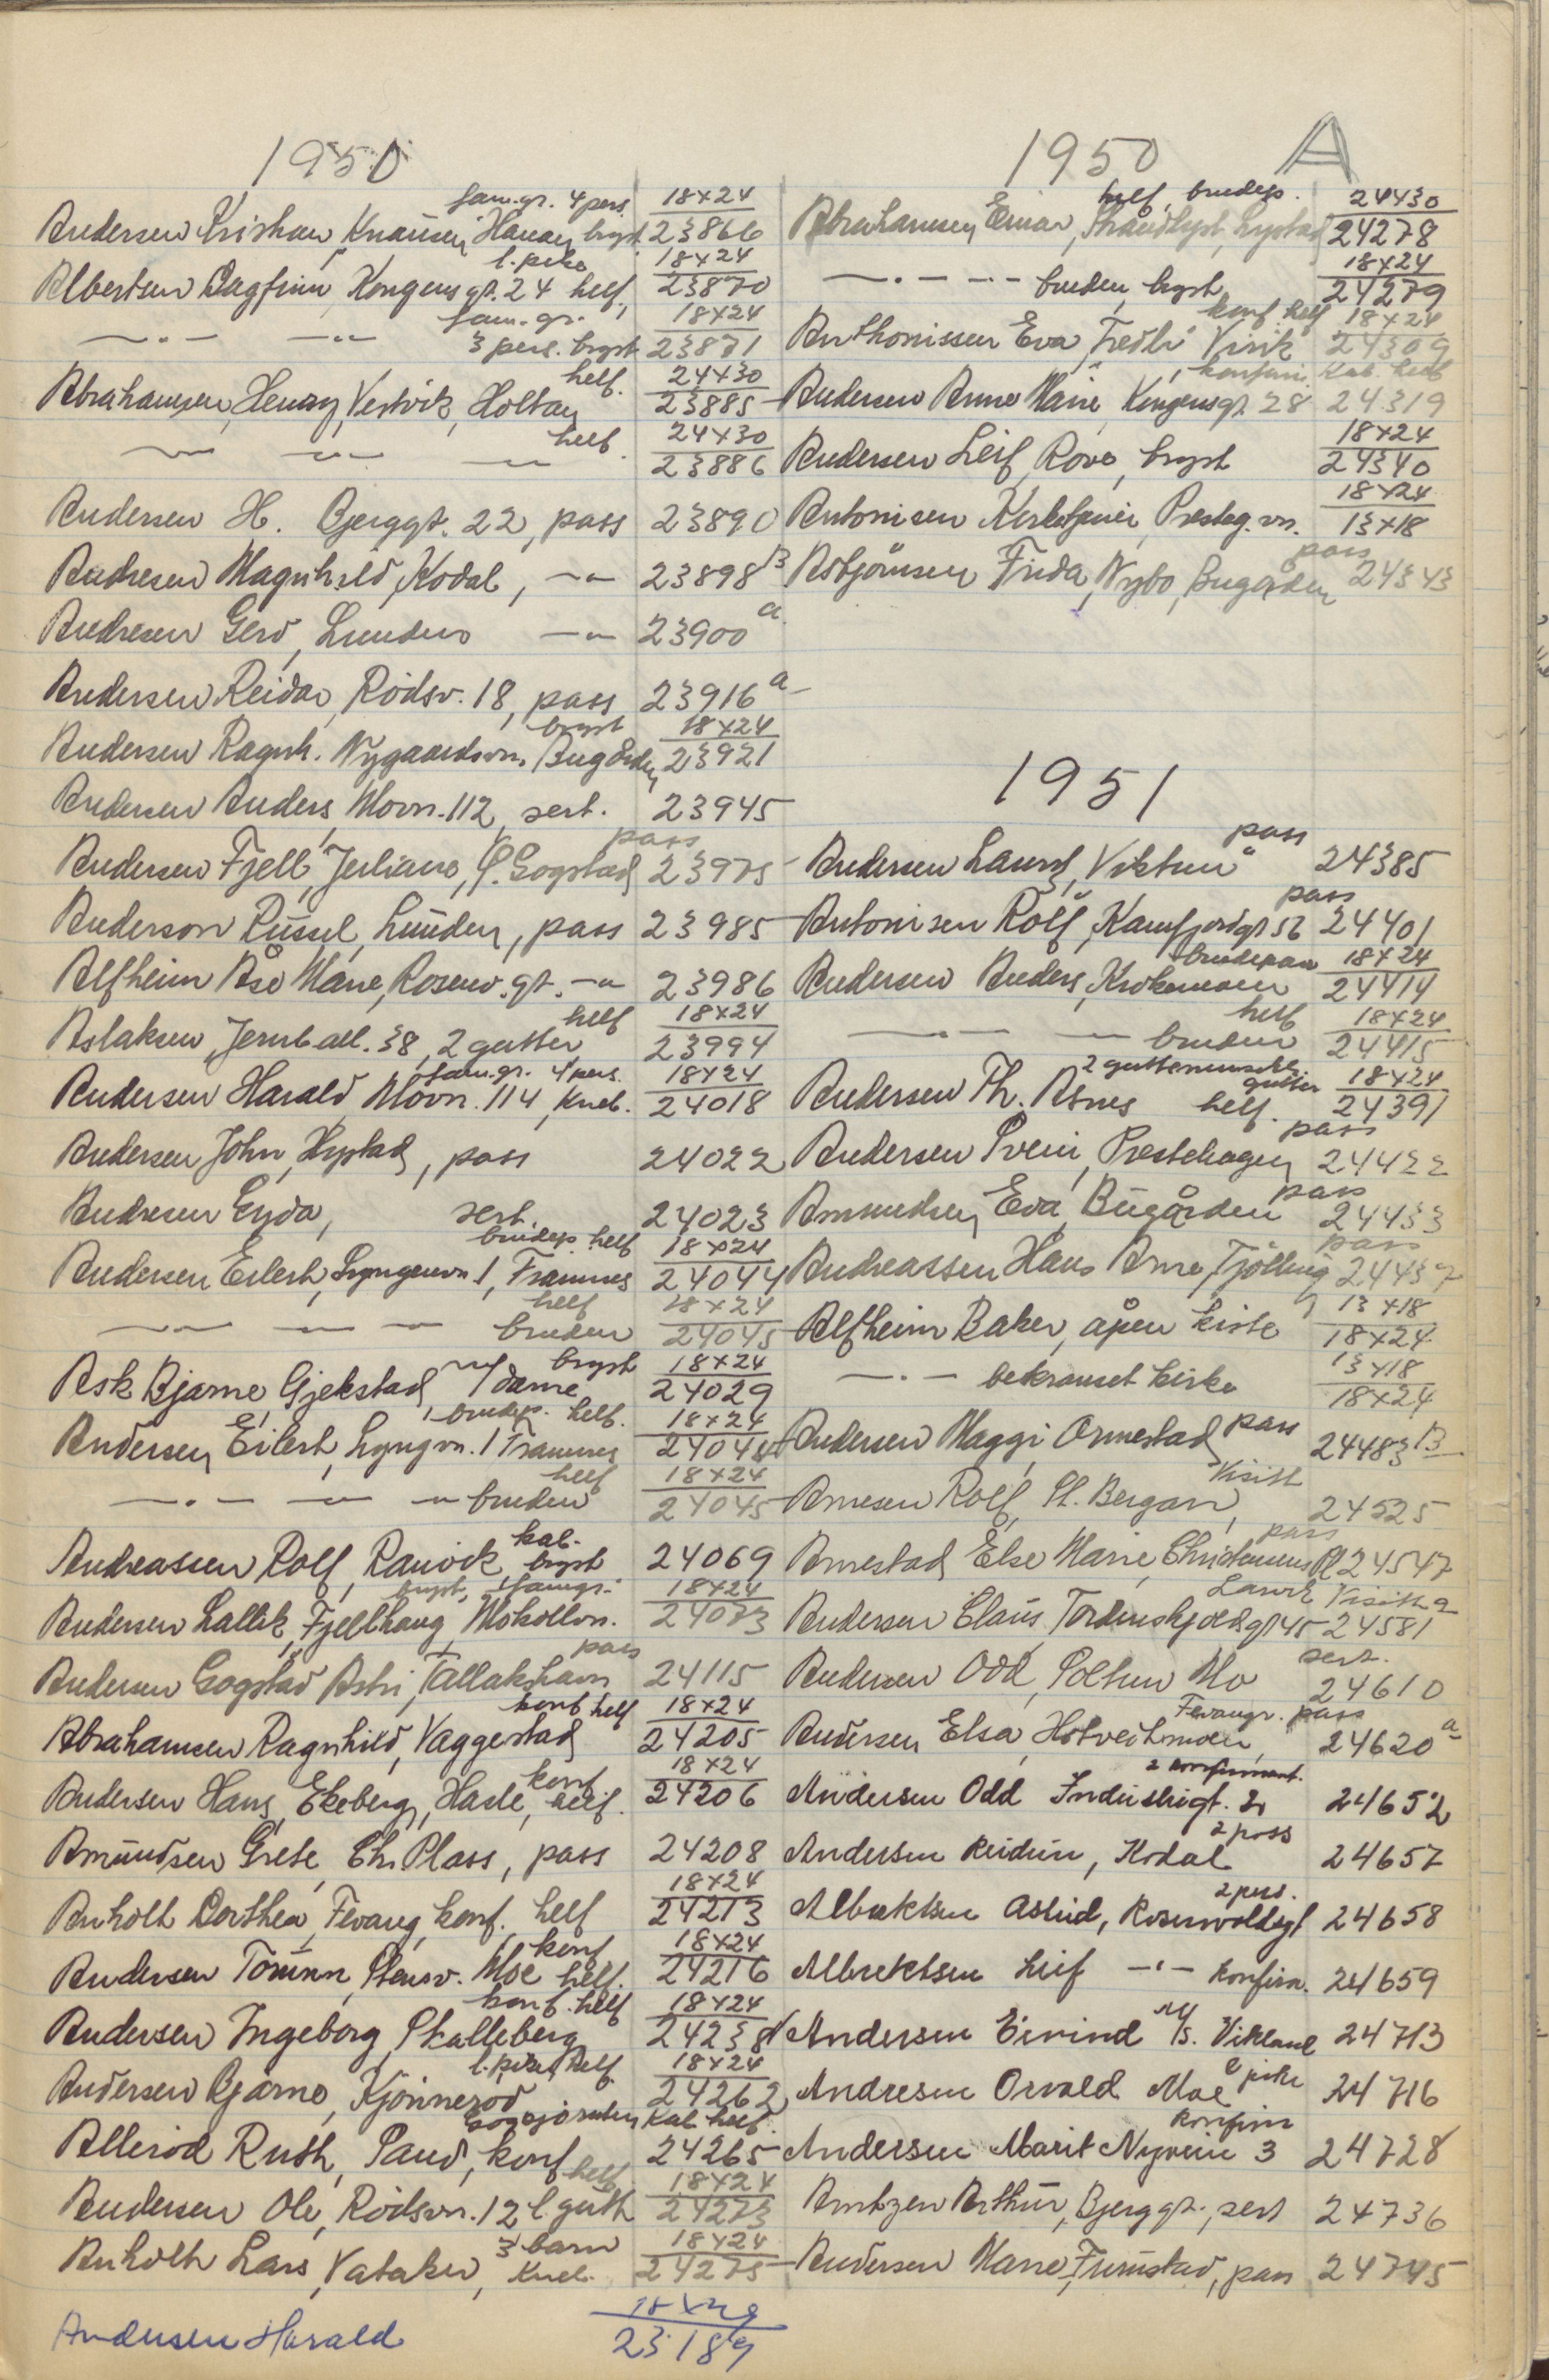 1950
fam.gr. 4 pers. 18x24
Andersen Kristian Knausen, Haugen bryst 23866
l. pike 18x24
Albertsen Dagfinn, Kongensgt. 24 helf. 23870
fam. gr. 18x24
— . — — . . 3 pers. bryst 23871
helf. 24x30
Abrahamsen, Henny, Vestvik, Holtan 23885
helf. 24x30
— — — 23886
Andersen H. Bjerggt. 22, pass 23890
Andresen Magnhild, Kodal, — " — 23898 B
Andresen Gerd, Lunden — " — 23900 a.
Andersen Reidar, Rødsv. 18, pass 23916 a
bryst 18x24
Andersen Ragnh. Nygaardsvn. Bugården 23921
Andersen Anders Movn. 112, sert. 23945
pass
Andersen Fjell, Juliane, Gogstad 23975
Anderson Russel, Lunden, pass 23985
Alfheim Åse Marie, Rosenv. gt. — " 23986
helf 18x24
Aslaksen, Jernb.all. 38, 2 gutter, 23994
fam.gr. 4 pers. 18x24
Andersen Harald, Movn. 114, kneb. 24018
Andersen John, Hystad, pass 24022
Andresen Gyda, sert. 24023
brudep. helf 18x24
Andersen Eilert, Lyngveien 1, Framnes 24044
helf 18x24
— — — bruden 24045
bryst 18x24
Ask Bjarne, Gjekstad, m/dame 24029
brudep. helf. 18x24
Andersen, Eilert, Lyngvn. 1 Framnes 24044
helf 18x24
— . — — — bruden 24045
kab.
Andreassen Rolf, Ranvik, bryst 24069
bryst, famgr. 18x24
Andersen Lallik, Fjellhaug, Mokollvn. 24073
pass
Andersen Gogstad Astri, Tallakshavn 24115
konf helf 18x24
Abrahamsen Ragnhild, Vaggestad 24205
konf 18x24
Andersen Hans, Ekeberg, Hasle, helf. 24206
Amundsen Grete, Chr. Plass, pass 24208
18x24
Anholt Dorthea, Fevang, konf. helf 24213
konf 18x24
Andersen Torunn, Stensv. Moe helf. 24216
konf. helf 18x24
Andersen Ingeborg, Skalleberg 24238
l. pike, helf. 18x24
Andersen Bjarne, Kjønnerød 24262
kab. helf.
Allerød Ruth, Sand, konf 24265
helf. 18x24
Andersen Ole, Rødsvn. 12 l. gutt 24273
3 barn 18x24
Anholt Lars, Vataker, kneb. 24275
Andersen Harald 23189
1950 A
helf, brudep. 24x30
Abrahamsen Einar, Strandlyst, Lystad 24278
18x24
— . — — — bruden, bryst 24279
konf. helf 18x24
Anthonissen Eva, Fredli, Virik 24309
konfirm. Kab. helf
Andersen Anne Marie, Kongensgt. 28 24319
18x24
Andersen Leif, Rove, bryst 24340
18x24
Antonisen, Presteg. vn. 13x18
pass
Asbjørnsen Frida, Nybo, Bugården 24343
1951
pass
Andersen Lauritz, Viktun 24385
pass
Antonisen Rolf, Kamfjordgt 56 24401
brudepar 18x24
Andersen Anders, Krokemoen 24414
helf 18x24
— . — — — bruden 24415
2 guttemunskl. gutter 18x24
Andersen Th. Asnes helf. 24391
pass
Andersen Svein, Prestehagen 24422
pass
Amundsen, Eva, Bugården 24433
pass
Andreassen Hans Arne, Tjølling 24437
13x18
Alfheim Baker, åpen kiste 18x24
13x18
— . — bekranset kiste 18x24
Andersen Maggi, Ormestad pass 24483 B
Visitt
Arnesen Rolf, St. Bergan, 24525
pass
Arnestad Else Marie, Christensens Pl 24547
Larvik Visitt a
Andersen Claus, Tordenskjoldsgt 45 24581
sert.
Andersen Odd, Soltun Mo 24610
Fevangr. pass
Andersen Elsa, Hotvedtmoen, 24620 a
2 konfirmant.
Andersen Odd Industrigt. 24652
2 pass
Andersen Reidun, Kodal 24657
2 pers.
Albrektsen Astrid, Rosenvoldsgt 24658
Albrektsen Leif — " — konfirm. 24659
Andersen Eivind M/S. Vikland 24713
Andresen Osvald Moe pike 24716
konfirm
Andersen Marit Nyveien 3 24728
Arntzen Arthur, Bjerggt., sert 24736
Andersen Marie, Furustad, pass 24745